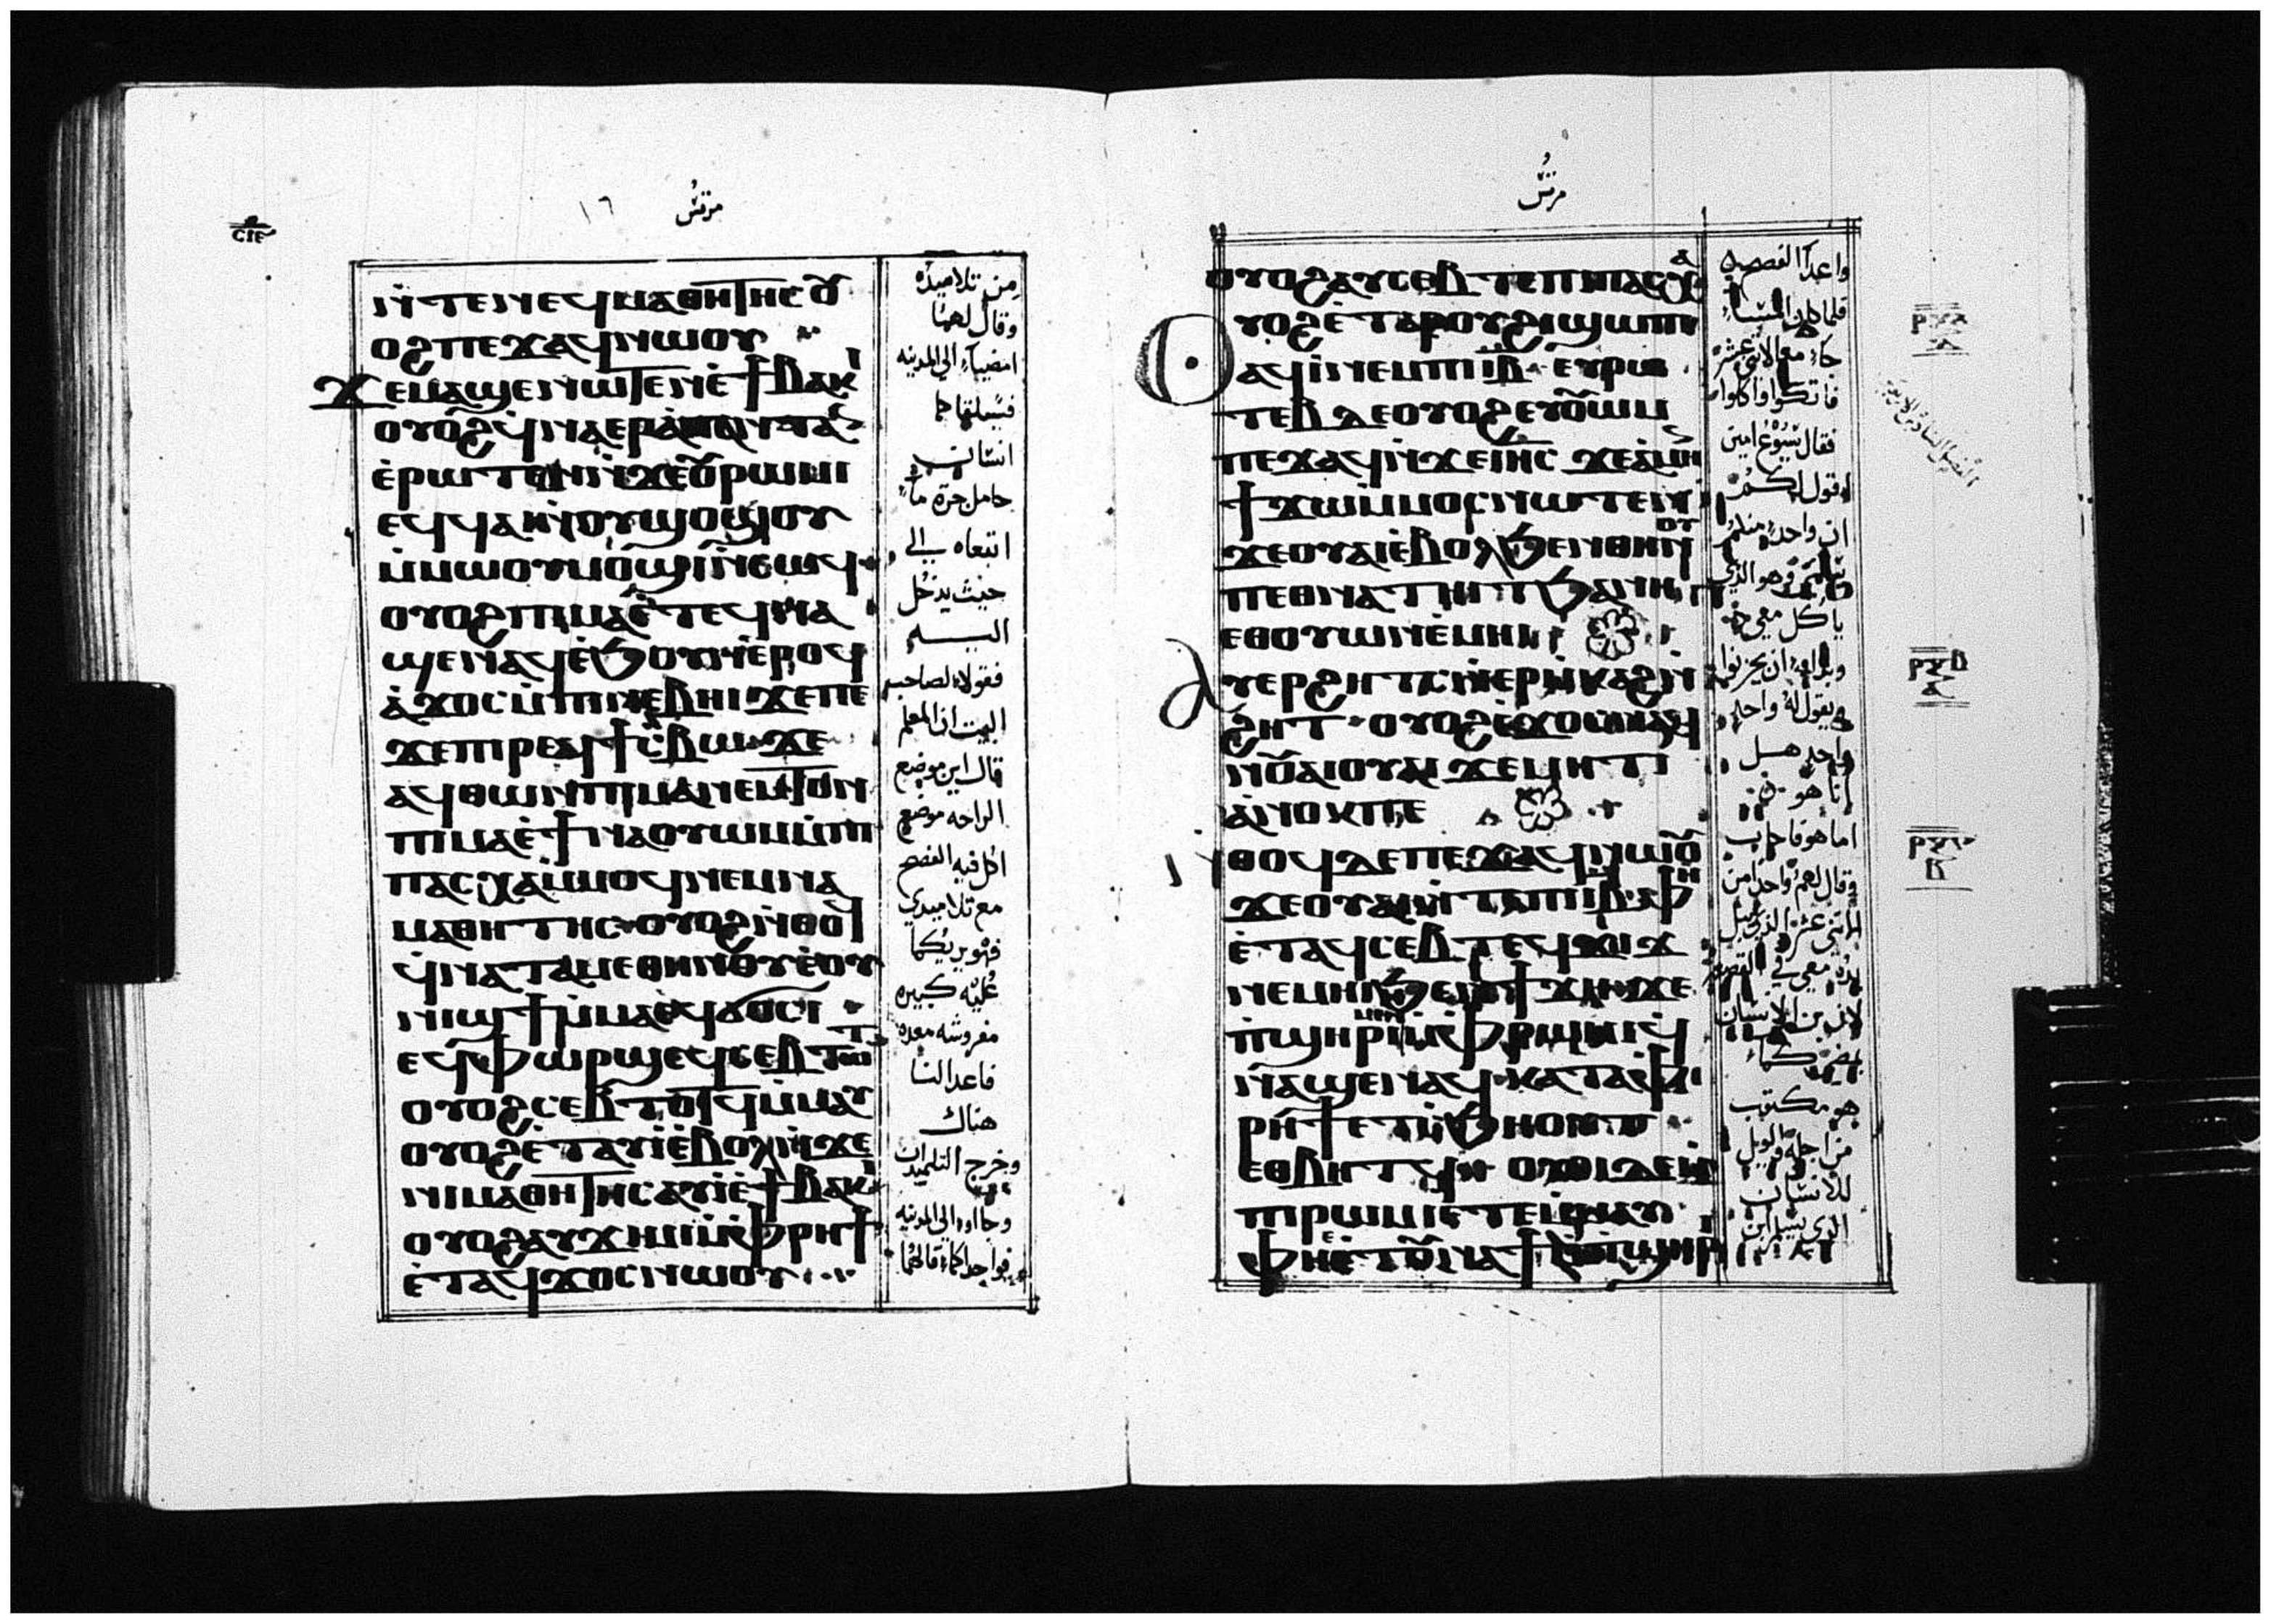 مرقس
١٦
ⲛ̀ⲧⲉⲛⲉϥⲙⲁⲑⲏⲧⲏⲥ ⲟⲩ
ⲟϩ ⲡⲉϫⲁϥ ⲛⲱⲟⲩ
ϫⲉ ⲙⲁϣⲉⲛⲱⲧⲉⲛ ⲉ̀ϯⲃⲁⲕⲓ
ⲟⲩⲟϩ ϥ̀ⲛⲁⲉⲣⲁⲡⲁⲛⲧⲁⲛ
ⲉ̀ⲣⲱⲧⲉⲛ ⲛ̀ϫⲉ ⲟⲩⲣⲱⲙⲓ
ⲉϥϥⲁⲓ ⲛ̀ⲟⲩϣⲟϣⲟⲩ
ⲙ̀ⲙⲱⲟⲩ ⲙⲟϣⲓ ⲛ̀ⲥⲱϥ
ⲟⲩⲟϩ ⲡⲓⲙⲁ ⲉ̀ⲧⲉϥⲛⲁ
ϣⲉⲛⲁϥ ⲉ̀ϧⲟⲩⲛ ⲉ̀ⲣⲟϥ
ⲁ̀ϫⲟⲥ ⲙ̀ⲡⲓⲛⲉⲃⲏⲓ ϫⲉ ⲡⲉ
ϫⲉ ⲡⲓⲣⲉϥϯⲥ̀ⲃⲱ ϫⲉ
ⲁϥⲑⲱⲛ ⲡⲓⲙⲁⲛⲉⲙⲧⲟⲛ
ⲡⲓⲙⲁ ⲉ̀ϯⲛⲁⲟⲩⲱⲙ ⲙ̀ⲡⲓ
ⲡⲁⲥⲭⲁ ⲙ̀ⲙⲟϥ ⲛⲉⲙ ⲛⲁ
ⲙⲁⲑⲏⲧⲏⲥ ⲟⲩⲟϩ ⲛ̀ⲑⲟϥ
ϥ̀ⲛⲁⲧⲁⲙⲉ ⲑⲏⲛⲟⲩ ⲉ̀ⲟⲩ
ⲛⲓϣϯ ⲙ̀ⲙⲁ ⲉϥϭⲟⲥⲓ
ⲉϥⲫⲱⲣϣ ⲉϥⲥⲉⲃⲧⲱⲧ
ⲟⲩⲟϩ ⲥⲉⲃⲧⲱⲧϥ ⲙ̀ⲙⲁⲩ
ⲟⲩⲟϩ ⲉ̀ⲧⲁⲩⲓ̀ ⲉ̀ⲃⲟⲗ ⲛ̀ϫⲉ
ⲛⲓⲙⲁⲑⲏⲧⲏⲥ ⲁⲩⲓ̀ ⲉ̀ϯⲃⲁⲕⲓ
ⲟⲩⲟϩ ⲁⲩϫⲓⲙⲓ ⲙ̀ⲫⲣⲏϯ
ⲉ̀ⲧⲁϥϫⲟⲥ ⲛⲱⲟⲩ
من تلاميذه
وقال لهما
امضيا الي المدينه
فسيلقاكما
انسان
حامل جرة ماء
اتبعاه الي
حيث يدخل
اليـــــه
فقولا لصاحب
البيت ان المعلم
قال اين موضع
الراحه موضع
اكل فيه الفصح
مع تلاميذي
فهو يريكما
عليه كبيره
مفروشه معده
فاعدا لنا
هناك
وخرج التلميذان
وجااوا الي المدينه
فواجدا كما قال لهما
مرقس
ⲟⲩⲟϩ ⲁⲩⲥⲉⲃⲧⲉ ⲡⲓⲡⲁⲥⲭⲁ
ⲟⲩⲟϩ ⲉ̀ⲧⲁⲣⲟⲩϩⲓ ϣⲱⲡⲓ
ⲁϥⲓ̀ ⲛⲉⲙ ⲡⲓⲓⲃ ⲉⲩⲣⲱ
ⲧⲉⲃ ⲇⲉ ⲟⲩⲟϩ ⲉⲩⲟⲩⲱⲙ
ⲡⲉϫⲁϥ ⲛ̀ϫⲉ ⲓⲏⲥ ϫⲉ ⲁⲙⲏⲛ
ϯϫⲱ ⲙ̀ⲙⲟⲥ ⲛⲱⲧⲉⲛ
ϫⲉ ⲟⲩⲁⲓ ⲉ̀ⲃⲟⲗ ϧⲉⲛ ⲑⲏⲛⲟⲩ
ⲡⲉⲑⲛⲁⲧⲏⲓⲧ ϧⲁ ⲫⲏ
ⲉⲑⲟⲩⲱⲙ ⲛⲉⲙⲏⲓ
ⲁⲩⲉⲣϩⲏⲧⲥ ⲛ̀ⲉⲣⲙ̀ⲕⲁϩ ⲛ̀
ϩⲏⲧ ⲟⲩⲟϩ ⲉ̀ϫⲟⲥ ⲛⲁϥ
ⲛⲟⲩⲁⲓ ⲟⲩⲁⲓ ϫⲉ ⲙⲏⲧⲓ
ⲁ̀ⲛⲟⲕ ⲡⲉ
ⲛ̀ⲑⲟϥ ⲇⲉ ⲡⲉϫⲁϥ ⲛⲱⲟⲩ
ϫⲉ ⲟⲩⲁⲓ ⲛ̀ⲧⲉ ⲡⲓⲓⲃ ⲫⲏ
ⲉ̀ⲧⲁϥⲥⲉⲃ ⲧⲉϥϫⲓϫ
ⲛⲉⲙⲏⲓ ϧⲉⲛ ϯ ϫⲉ
ⲡ̀ϣⲏⲣⲓ ⲙⲉⲛ ⲙ̀ⲫⲣⲱⲙⲓ ϥ̀
ⲛⲁϣⲉⲛⲁϥ ⲕⲁⲧⲁ ⲫ
ⲣⲏϯ ⲉⲧⲥϧⲏⲟⲩⲧ
ⲉⲑⲃⲏⲧϥ ⲟⲩⲟⲓ ⲇⲉ ⲙ̀
ⲡⲓⲣⲱⲙⲓ ⲉⲧⲉⲙⲙⲁⲩ
ⲫⲏ ⲉ̀ⲧⲟⲩⲛⲁϯ ⲙ̀ⲡ̀ϣⲏⲣⲓ
واعدا الفصح
فلما كان المساء
جاء مع الاثني عشر
فاتكوا واكلوا
فقال يسوع امين
اقول لكم
ان واحدا منكم
يسلمني وهو الذي
ياكل معي
وبداوا ان يحزنوا
ويقول له واحد
واحد هـــل
انا هو
اما هو فاجاب
وقال لهم واحد من
الاثني عشر الذي
يده معي في القصعه
لان ابن الانسان
يمضي كما
هو مكتوب
من اجله الويل
للانسان
الذي يسلم ابن
ⲣⲝⲁ
ⲣⲝⲃ
ⲣⲝⲅ